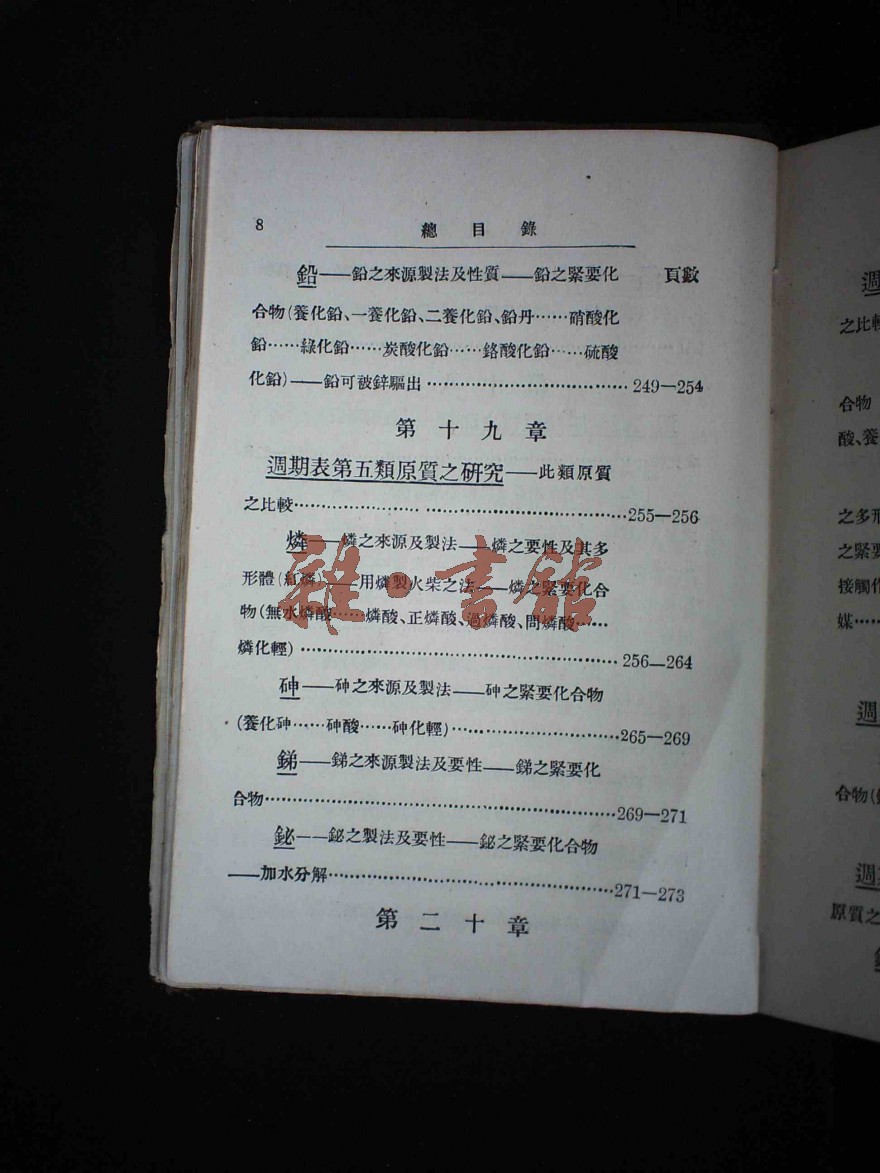 8
總目錄
鉛——鉛之來源製法及性質——鉛之緊要化 頁數
合物(養化鉛、一養化鉛、二養化鉛、鉛丹……硝酸化
鉛……綠化鉛……炭酸化鉛……鉻酸化鉛……硫酸
化鉛)——鉛可被鋅驅出……………………249—254
第十九章
週期表第五類原質之研究——此類原質
之比較……………………………………255—256
燐——燐之來源及製法——燐之要性及其多
形體(紅燐)——用燐製火柴之法——燐之緊要化合
物(無水燐酸……燐酸、正燐酸、過燐酸、間燐酸……
燐化輕)……………………………………256—264
砷——砷之來源及製法——砷之緊要化合物
(養化砷……砷酸……砷化輕)…………………265—269
銻——銻之來源製法及要性——銻之緊要化
合物………………………………………269—271
鉍——鉍之製法及要性——鉍之緊要化合物
——加水分解………………………………271—273
第二十章
雜·書館
週
之比較
合物
酸、養
之多形
之緊要
接觸作
媒……
週
合物(
週
原質之